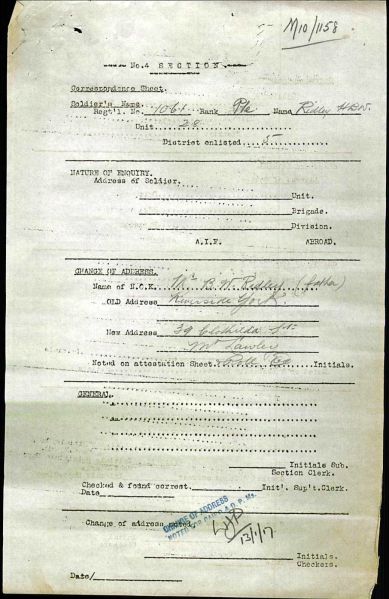 M10/1158
No.4 SECTION.
Correspondence Sheet.
Soldier's Name.
Regt'l. No. 1061 Rank Pte Name Ridley H.B.W.
Unit 28
District enlisted 5
NATURE OF ENQUIRY.
Address of Soldier.
Unit.
Brigade.
Division.
A.I.F. ABROAD.
CHANGE OF ADDRESS.
Name of N.O.K. Mr B. W. Ridley (father)
OLD Address Riverside York.
New Address 39 Clothilda St.
Mt Lawley
Noted on attestation Sheet. Initials.
GENERAL.
Initials Sub.
Section Clerk.
Checked & found correct. Init'. Sup't.Clerk.
Date
CHANGE OF ADDRESS
NOTED FOR
Change of address noted
13/1/17
Initials.
Checkers.
Date/